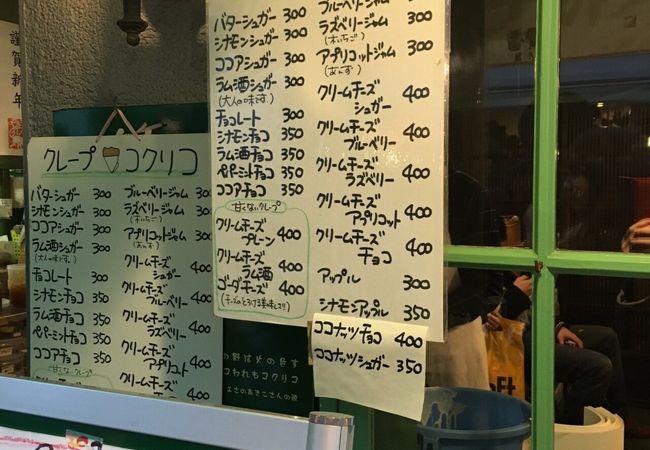 謹賀新年
クレープ コクリコ
バターシュガー 300
シナモンシュガー 300
ココアシュガー 300
ラム酒シュガー 300
(大人の味です。)
チョコレート 300
シナモンチョコ 350
ラム酒チョコ 350
ペパーミントチョコ 350
ココアチョコ 350
甘くないクレープ
クリームチーズ 400
ブルーベリージャム 300
ラズベリージャム 300
(木いちご)
アプリコットジャム 300
(あんず)
クリームチーズ 400
シュガー
クリームチーズ 400
ブルーベリー
クリームチーズ 400
ラズベリー
クリームチーズ 400
アプリコット
クリームチーズ 400
チョコ
バターシュガー 300
シナモンシュガー 300
ココアシュガー 300
ラム酒シュガー 300
(大人の味です。)
チョコレート 300
シナモンチョコ 350
ラム酒チョコ 350
ペパーミントチョコ 350
ココアチョコ 350
甘くないクレープ
クリームチーズ 400
プレーン
クリームチーズ 400
ラム酒
ゴーダチーズ 400
(チーズのとろける美味しさ!!)
ブルーベリージャム 300
ラズベリージャム 300
(木いちご)
アプリコットジャム 300
(あんず)
クリームチーズ 400
シュガー
クリームチーズ 400
ブルーベリー
クリームチーズ 400
ラズベリー
クリームチーズ 400
アプリコット
クリームチーズ 400
チョコ
アップル 300
シナモンアップル 350
ココナッツチョコ 400
ココナッツシュガー 350
の野は火の色す
われもコクリコ
よさのあきこさんの歌